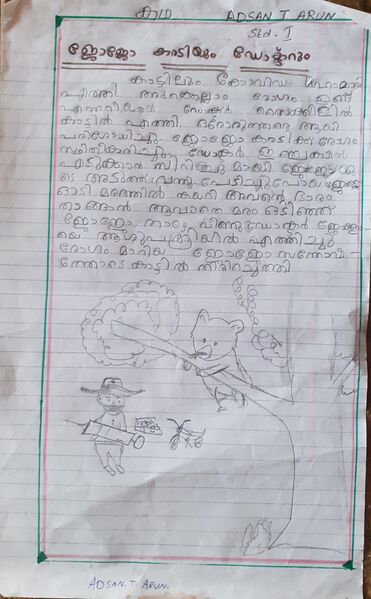 കഥ ADSAN T ARUN
Std. I
ജോജോ കരടിയും ഡോക്ടറും
കാട്ടിലും കോവിഡ് മഹാമാരി
എത്തി ആർക്കെല്ലാം രോഗം ഉണ്ട്
എന്നറിയാൻ ഡോക്ടർ സൈക്കിളിൽ
കാട്ടിൽ എത്തി. ഓരോരുത്തരെ ആയി
പരിശോധിച്ചു. ജോജോ കരടിക്ക് രോഗം
സ്ഥിതികരിച്ചു. ഡോക്ടർ ഇഞ്ചക്ഷൻ
എടുക്കാൻ സിറിഞ്ചു മായി ജോജോയു
ടെ അടുത്ത് വന്നു. പേടിച്ചുപോയ ജോജോ
ഓടി മരത്തിൽ കയറി അവന്റെ ഭാരം
താങ്ങാൻ ആവാതെ മരം ഒടിഞ്ഞ്
ജോജോ താഴെ വീണു ഡോക്ടർ ജോജോ
യെ ആശുപത്രിയിൽ എത്തിച്ചു
രോഗം മാറിയ ജോജോ സന്തോഷ
ത്തോടെ കാട്ടിൽ തിരിച്ചെത്തി
ADSAN. T. ARUN.